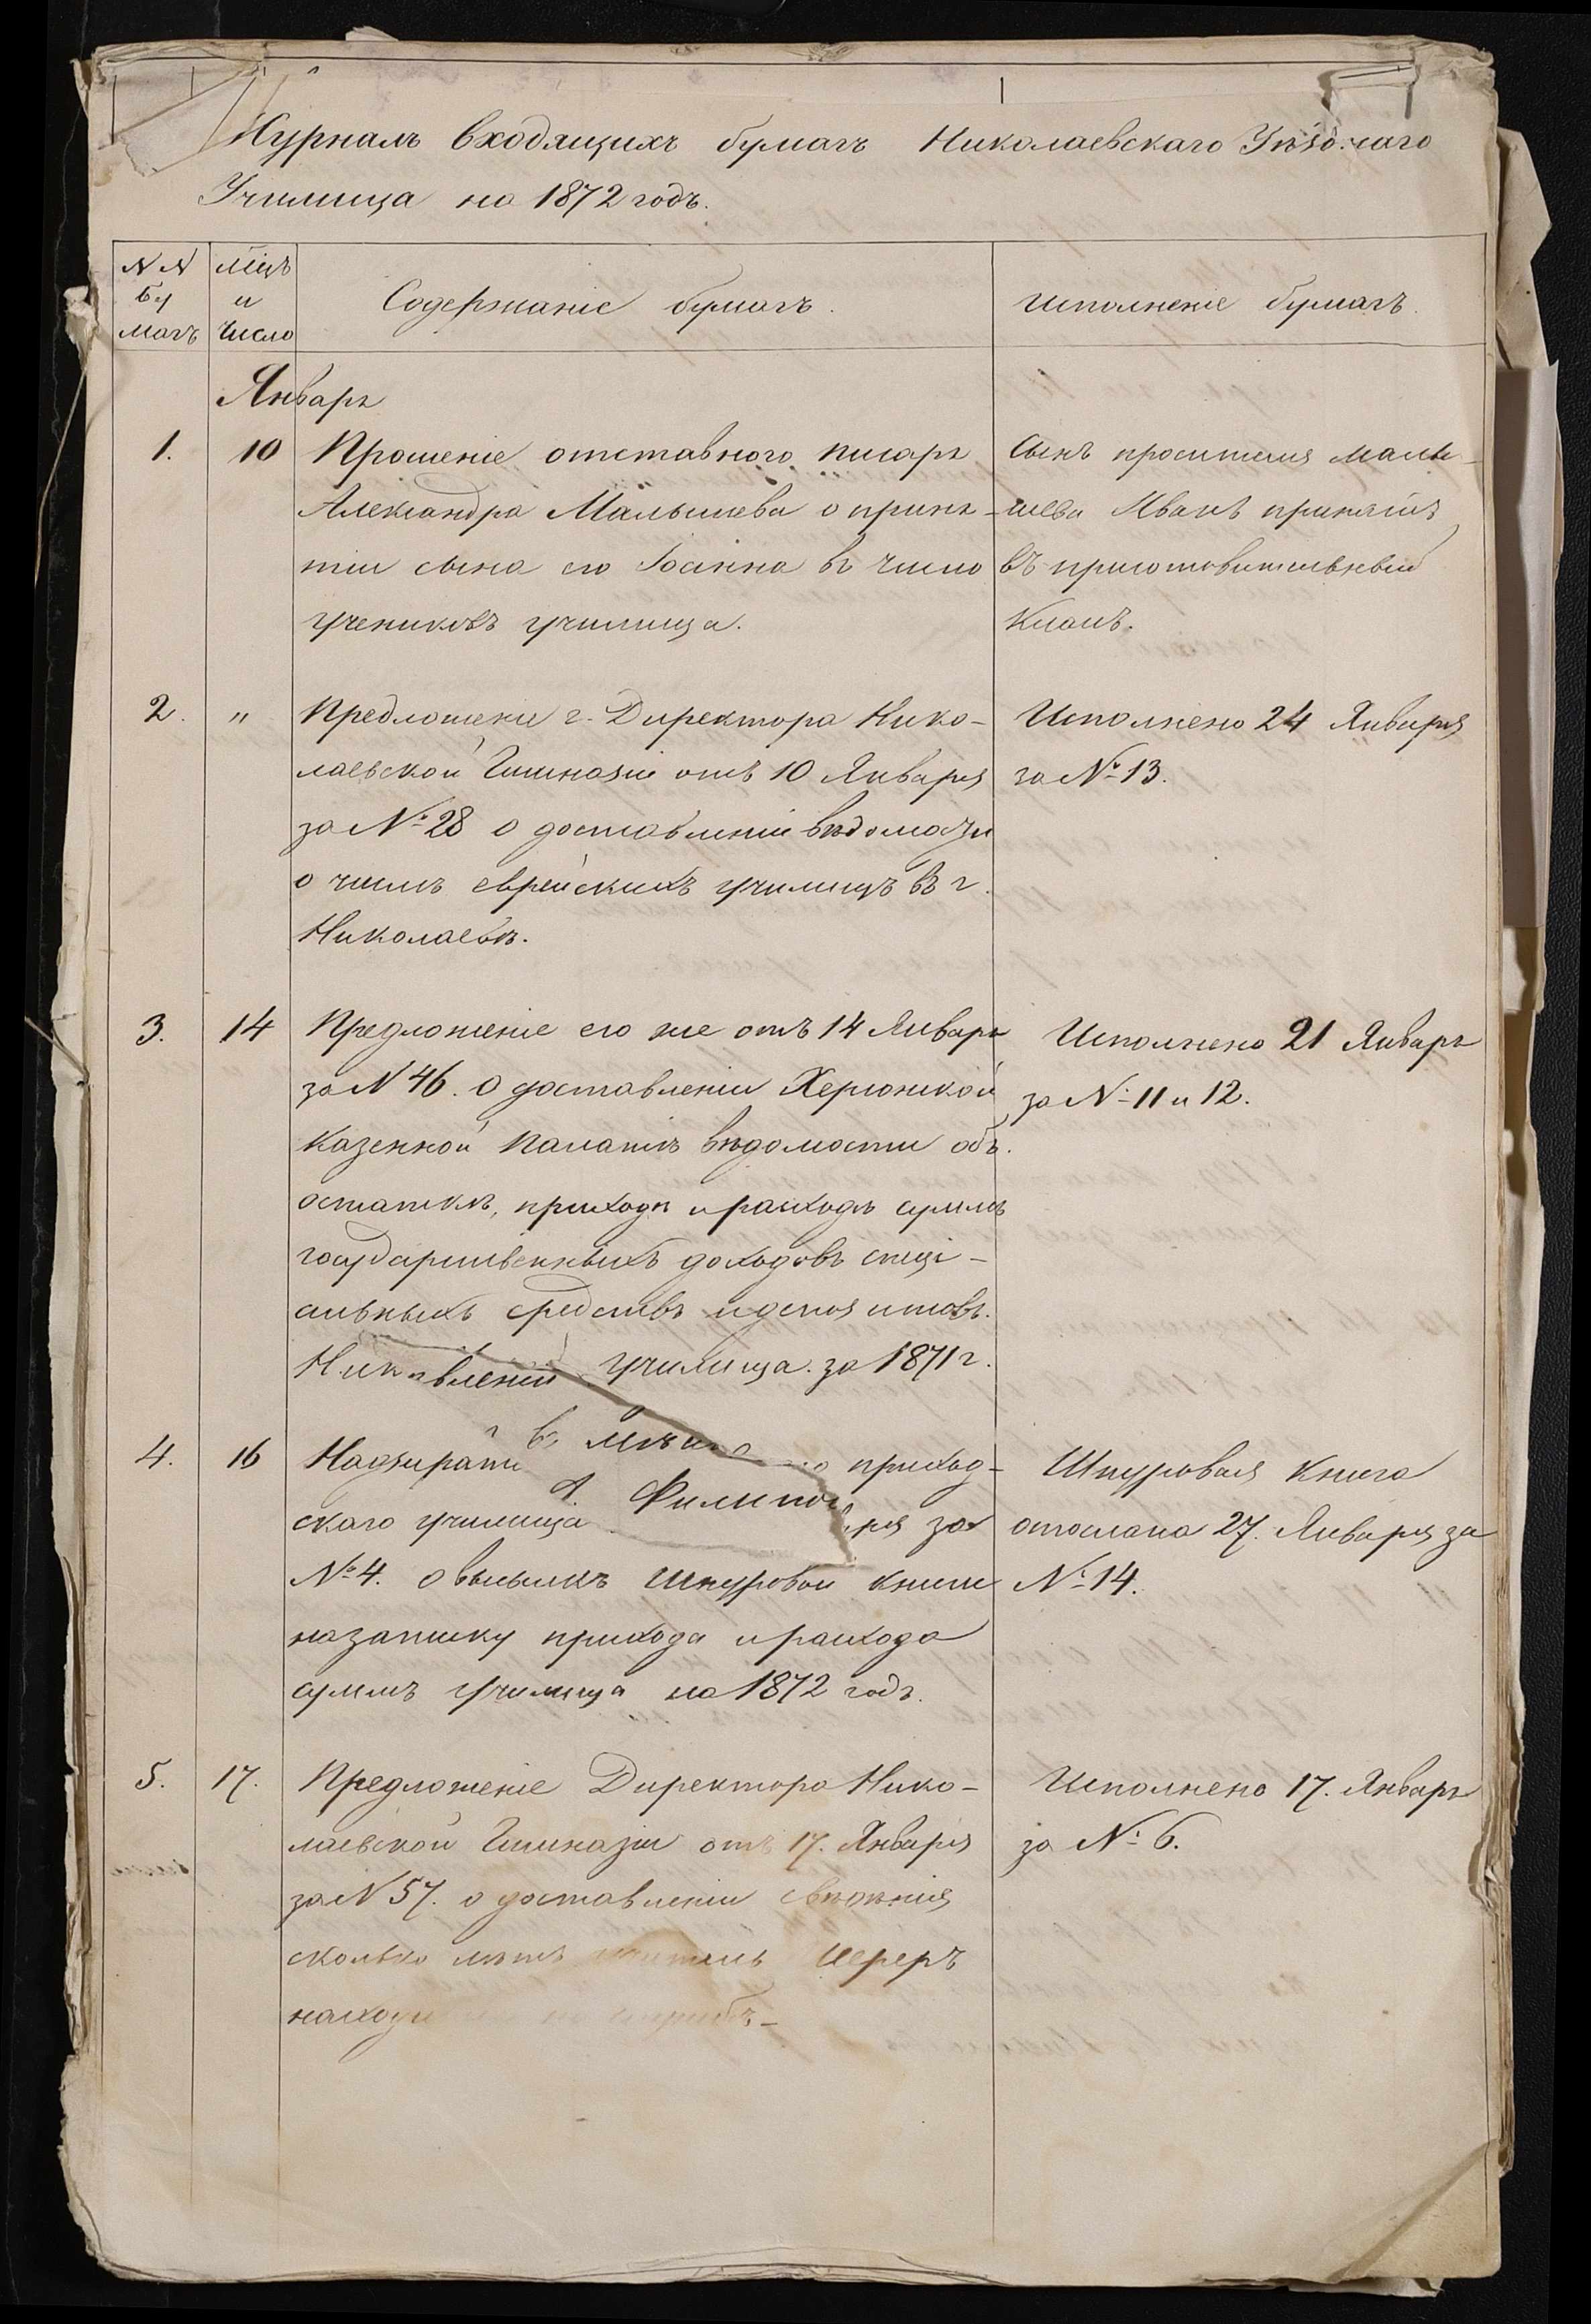 Журналъ входящихъ бумагъ Николаевскаго Уѣзднаго
Училища на 1872 годъ.
NN
бу
магъ
Мѣцъ
и
число
Содержаніе бумагъ.
Исполненіе бумагъ.
Январь
1.
10
Прошеніе отставного писаря
Александра Малышева о приня-
тіи сына его Іоанна въ число
учениковъ училища.
Сынъ просителя Малы-
шева Иванъ принятъ
въ приготовительный
классъ.
2.
"
Предложеніе г. Директора Нико-
лаевской Гимназіи отъ 10 Января
за № 28 о доставленіи вѣдомости
о числѣ еврейскихъ училищъ въ г.
Николаевѣ.
Исполнено 24 Января
за № 13.
3.
14
Предложеніе его же отъ 14 Января
за N 46. о доставленіи Херсонской
Казенной Палатѣ вѣдомости объ
остаткѣ, приходѣ и расходѣ суммъ
государственныхъ доходовъ спеці-
альныхъ средствъ и депозитовъ.
училища за 1871 г.
Исполнено 21 Января
за № 11 и 12.
влении
4.
16
Надзирати приход-
скаго училища ря за
№ 4. о высылкѣ шнуровой книги
на записку прихода и расхода
суммъ училища на 1872 годъ.
Филипо
Шнуровая книга
отослана 27. Января за
№ 14.
5.
17.
Предложеніе Директора Нико-
лаевской Гимназіи отъ 17. Января
за N 57. о доставленіи свѣдѣнія
сколько лѣтъ учитель Цереръ
Исполнено 17. Января
за № 6.